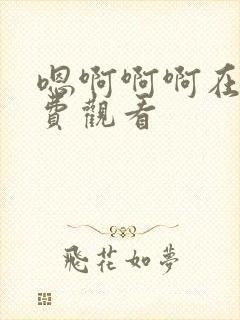 嗯啊啊啊在
費觀看
飛花如夢